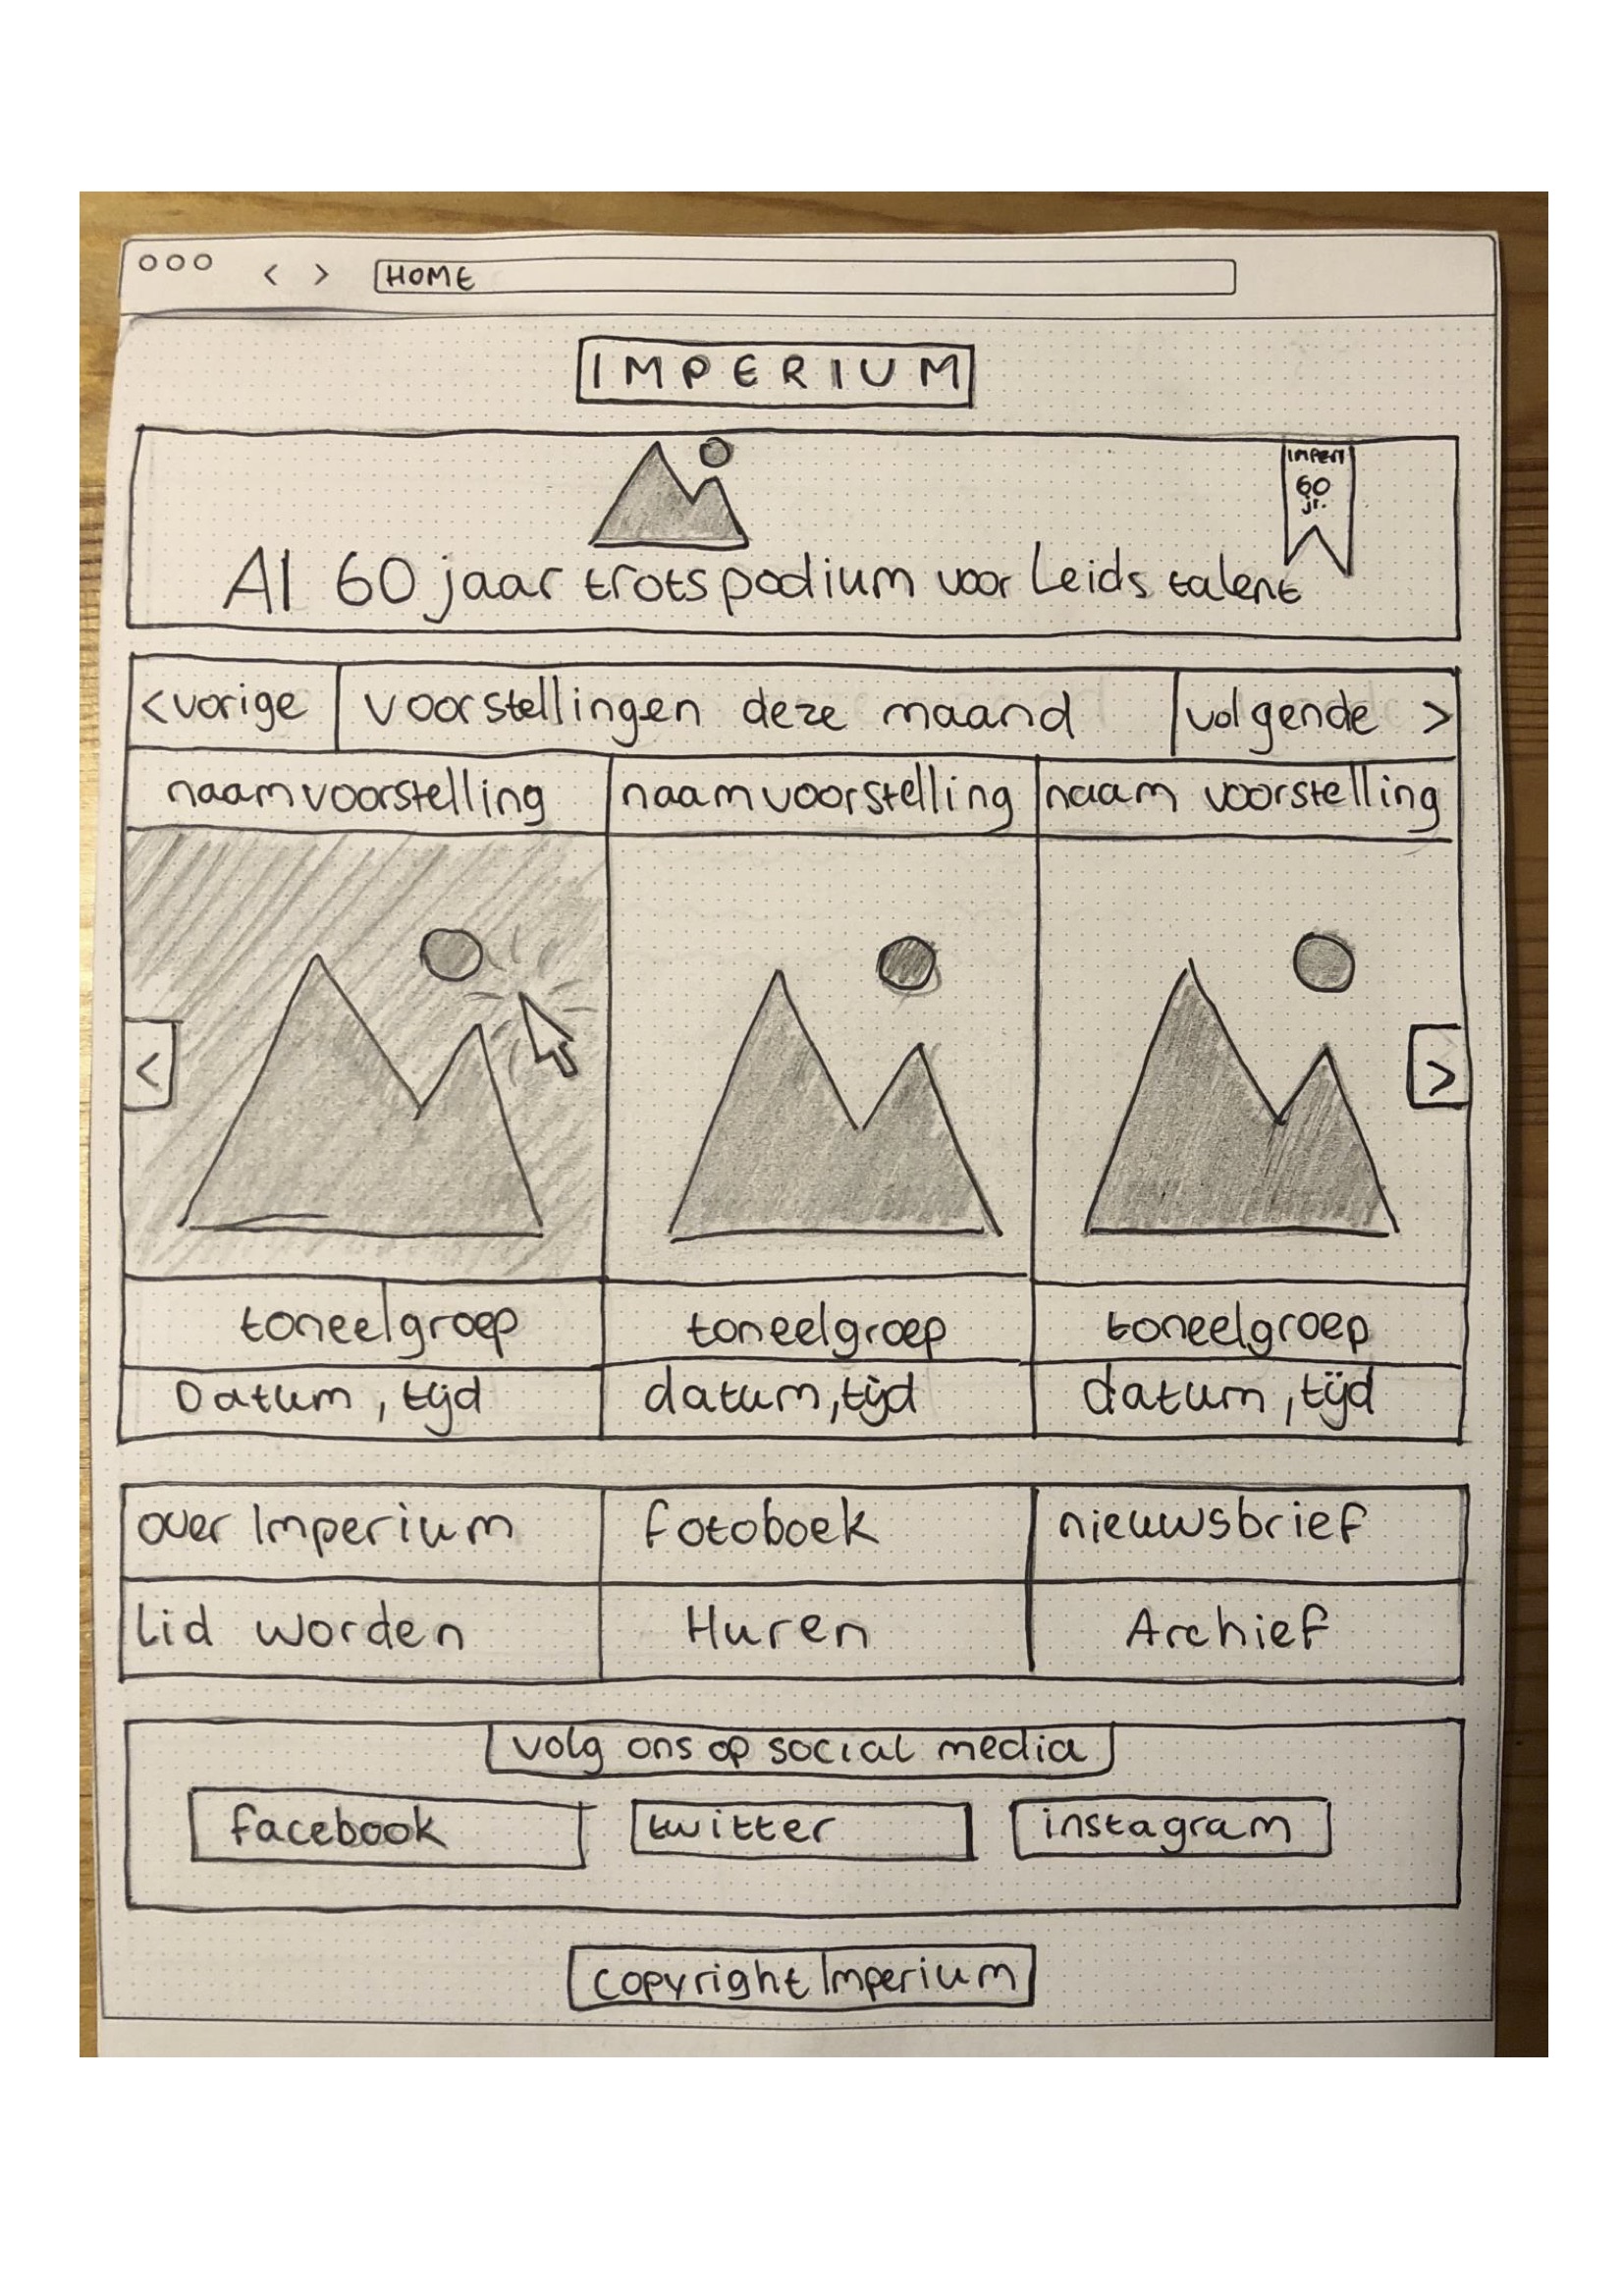 HOME
IMPERIUM
IMPERI
60
jr.
Al 60 jaar trots podium voor Leids talent
< vorige
voorstellingen deze maand
volgende >
naam voorstelling
naam voorstelling
naam voorstelling
<
>
toneelgroep
toneelgroep
toneelgroep
Datum, tijd
datum, tijd
datum, tijd
over Imperium
fotoboek
nieuwsbrief
Lid worden
Huren
Archief
volg ons op social media
facebook
twitter
instagram
copyright Imperium